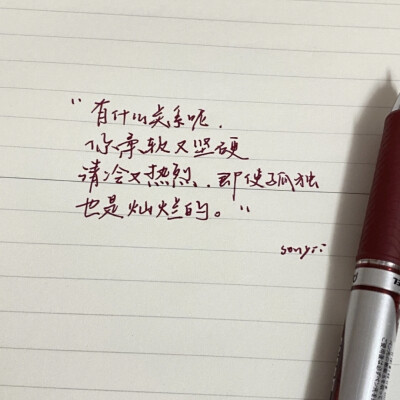 “有什么关系呢，
你柔软又坚硬
清冷又热烈，即使孤独
也是灿烂的。”